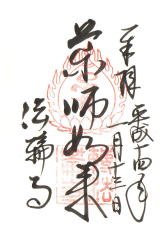 奉拝
平成十四年
月十三日
薬師如来
法輪寺